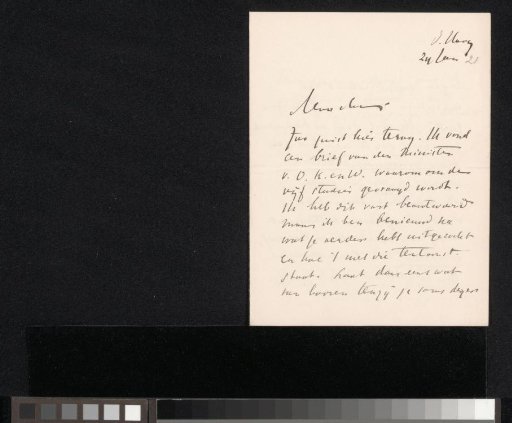 d. Haag
24 Jan 2
Ik vond
een brief van den Minister
v. O. K. en W. waarom om de
vijf studies gevraagd wordt.
Ik heb dit vast beantwoord
maar ik ben benieuwd na
wat je verders hebt uitgevoerd
en hoe 't met die tentoonst.
staat. Laat daar eens wat
van hooren tenzij je soms dezer